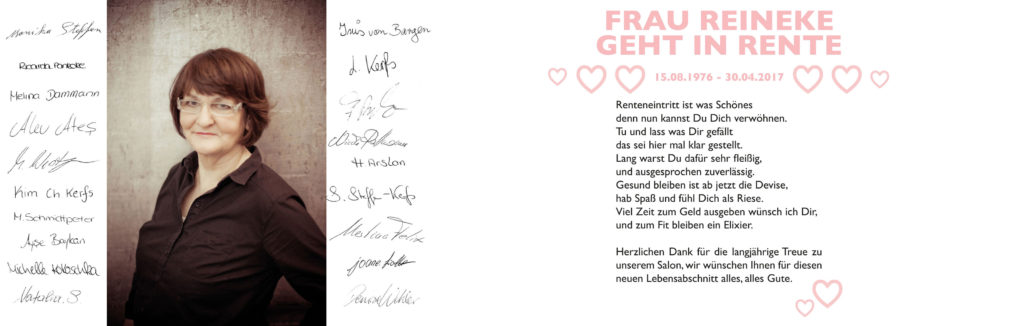 Monika Steffen
Ricarda
Melina Dammann
Alev Ateş
M.
Kim Ch Kerfs
M. Schmittpeter
Ayşe Baykan
Michelle Kokoschka
Natalia. S
Iris von Bargen
L. Kerfs
H Arslan
S. Steffen-Kerfs
Melina Felix
Joane
FRAU REINEKE
GEHT IN RENTE
15.08.1976 – 30.04.2017
Renteneintritt ist was Schönes
denn nun kannst Du Dich verwöhnen.
Tu und lass was Dir gefällt
das sei hier mal klar gestellt.
Lang warst Du dafür sehr fleißig,
und ausgesprochen zuverlässig.
Gesund bleiben ist ab jetzt die Devise,
hab Spaß und fühl Dich als Riese.
Viel Zeit zum Geld ausgeben wünsch ich Dir,
und zum Fit bleiben ein Elixier.
Herzlichen Dank für die langjährige Treue zu
unserem Salon, wir wünschen Ihnen für diesen
neuen Lebensabschnitt alles, alles Gute.